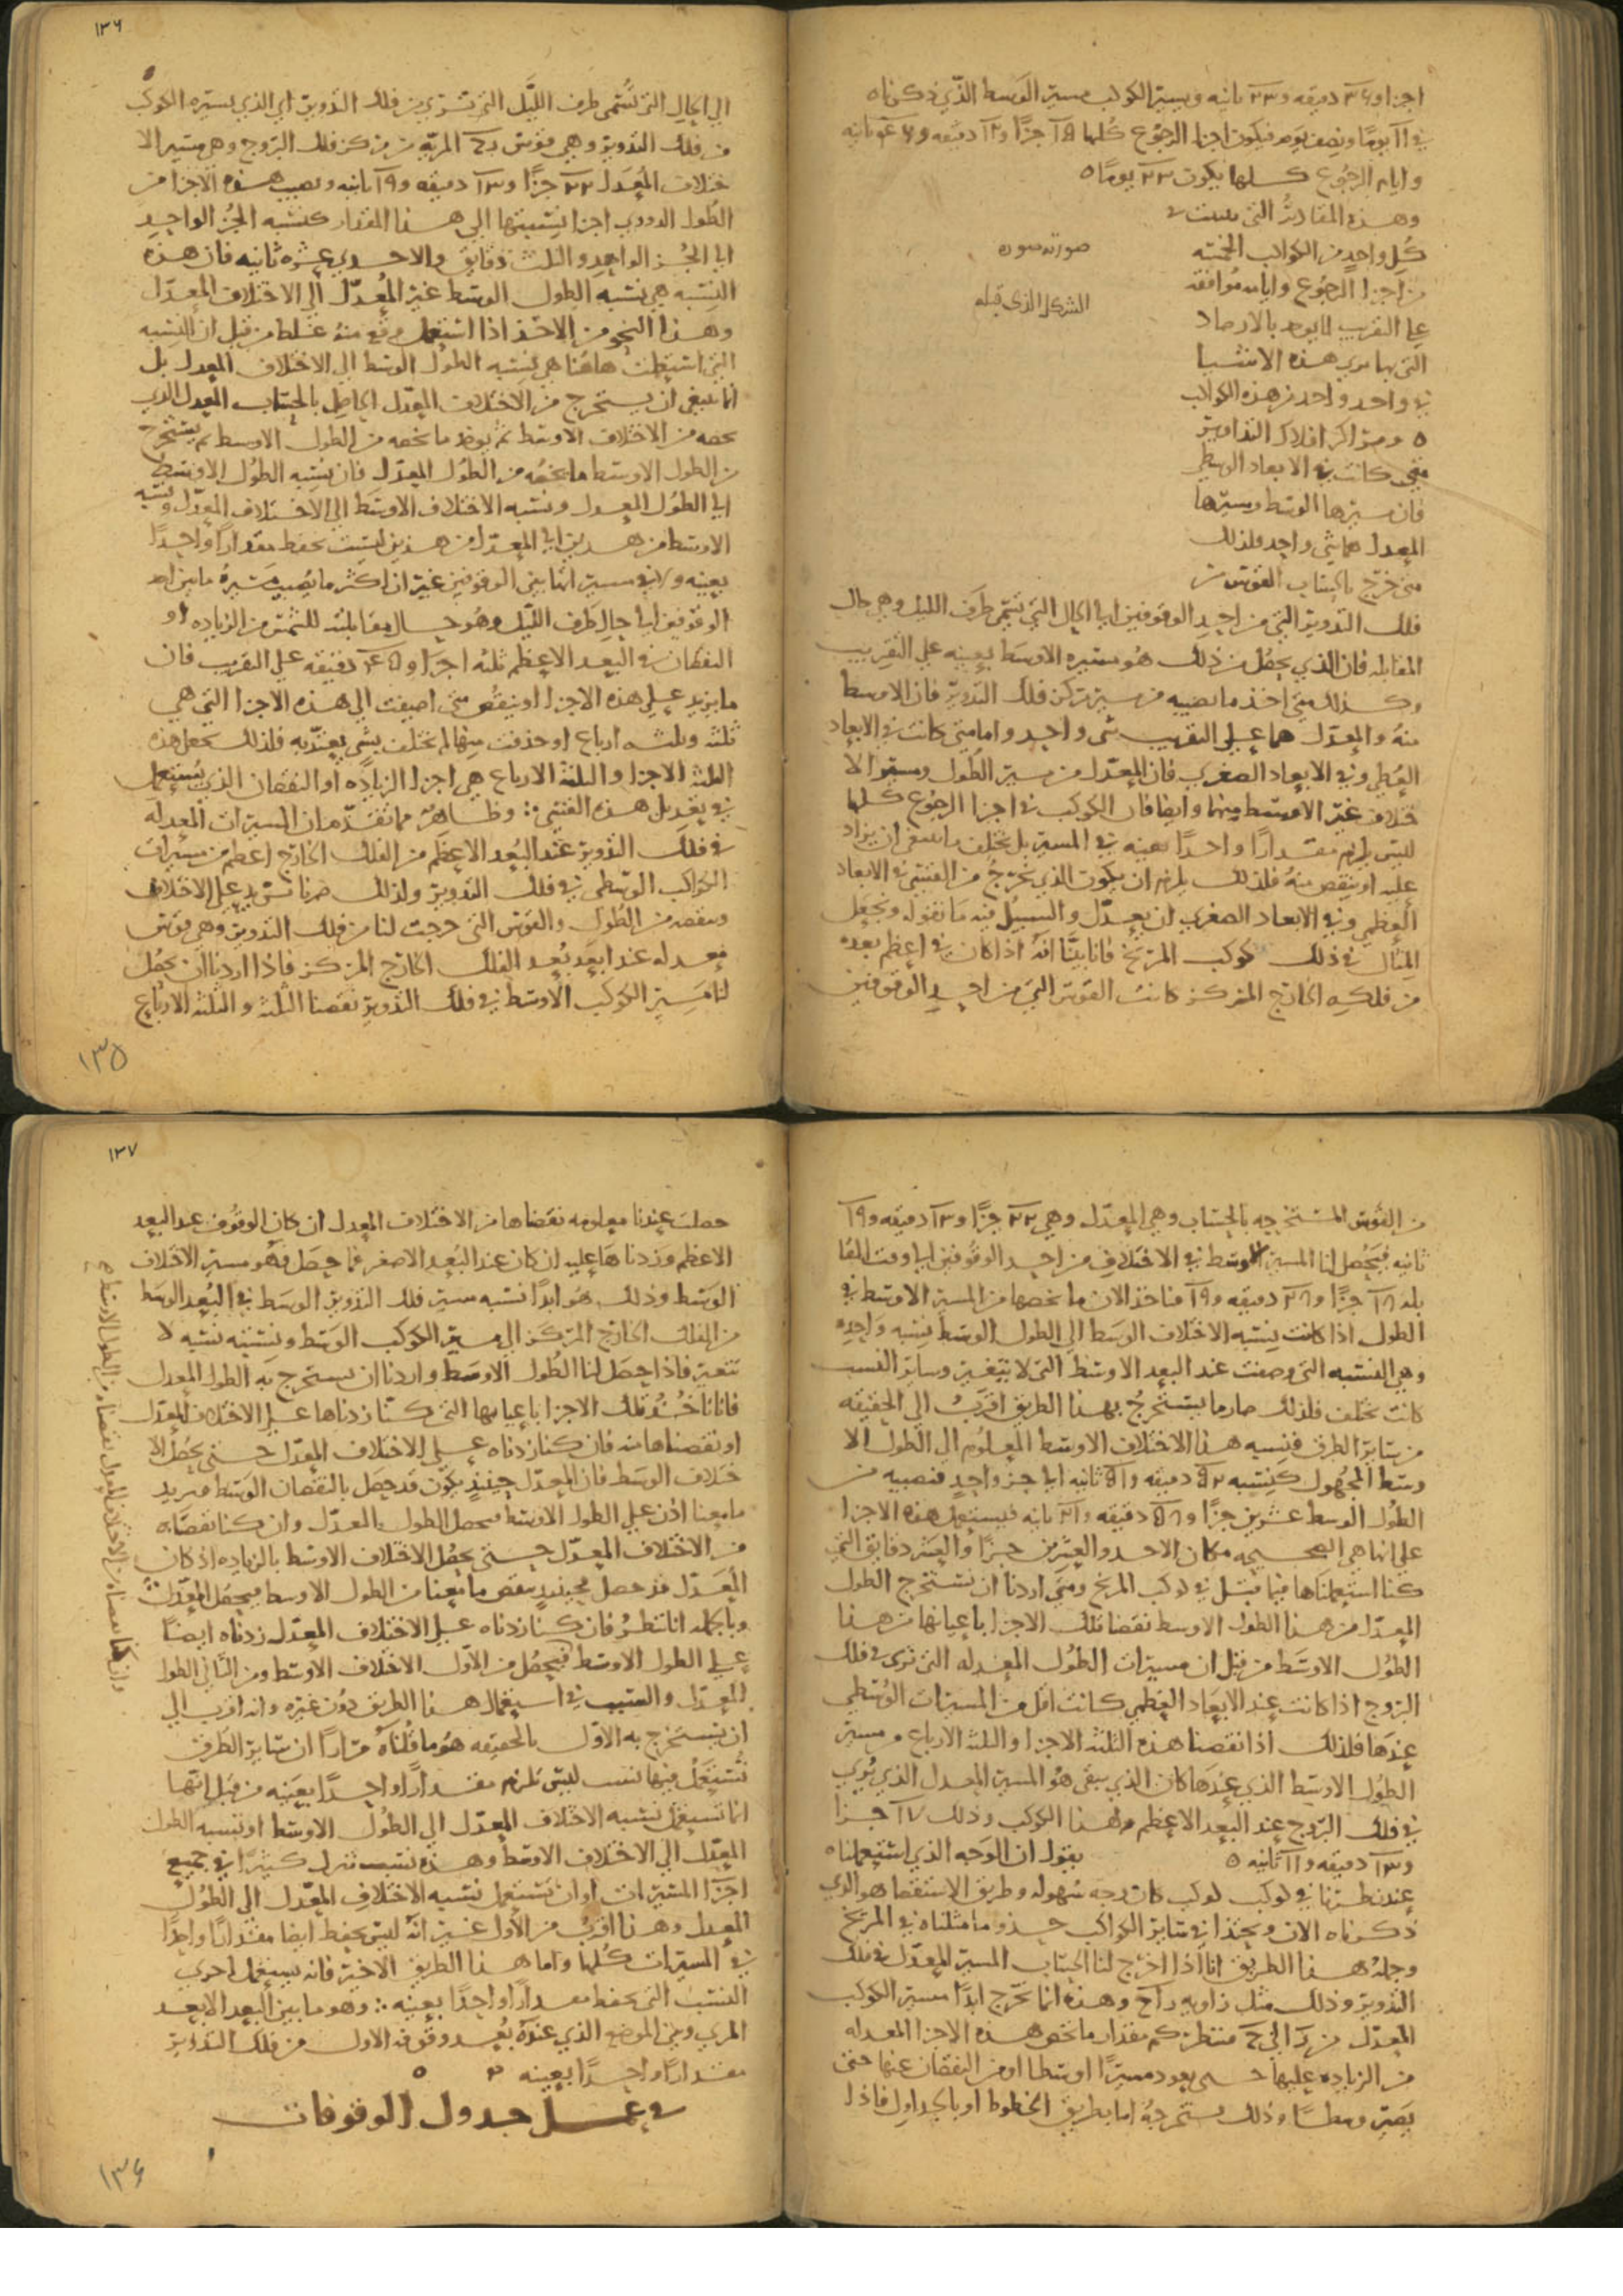 اجزا و٣٦ دقيقه و٢٣ ثانيه ويسير الكوكب مسير الوسط الذي ذكرناه
في ١١ يومًا ونصف يوم فتكون اجزا الرجوع كلها ١٥ جزًا و١٢ دقيقه و٤٦ ثانيه
وايام الرجوع كلها تكون ٢٣ يومًا ٥
وهذه المقادير التي بينت في
كل واحد من الكواكب الخمسه
من اجزا الرجوع وايامه موافقه
علي التقريب لما يوجد بالارصاد
التي بها نري هذه الاشيا
في واحد واحد من هذه الكواكب
٥ ومراكز افلاك التداوير
متي كانت في الابعاد الوسطي
فان مسيرها الوسط ومسيرها
المعدل هما شي واحد فلذلك
متي خرج بالحساب القوس من
صورته صوره
الشكل الذي قبله
فلك التدوير التي من احد الوقوفين الي الحال التي تسمي طرف الليل وهي حال
المقابله فان الذي يحصل من ذلك هو مسيره الاوسط بعينه علي التقريب
وكذلك متي اخذ ما نصيبه من مسير مركز فلك التدوير فان الاوسط
منه والمعدل هما علي التقريب شي واحد واما متي كانت في الابعاد
العظمي وفي الابعاد الصغري فان المعدل من مسير الطول ومسير الا
ختلاف غير الاوسط منهما وايضا فان الكوكب في اجزا الرجوع كلها
ليس يلزم مقدارًا واحدًا بعينه في المسير بل يختلف ما ينبغي ان يزاد
عليه او ينقص منه فلذلك يلزم ان يكون الذي يخرج من القسي في الابعاد
العظمي وفي الابعاد الصغري ان يعدل والسبيل فيه ما نقوله ونجعل
المثال في ذلك كوكب المريخ فانا بينا انه اذا كان في اعظم بعده
من فلكه الخارج المركز كانت القوس التي من احد الوقوفين
١٣٦
الي الحال التي تسمي طرف الليل التي تري من فلك التدوير اي الذي يسيره الكوكب
من فلك التدوير وهي قوس المريه من مركز فلك البروج وهي مسير الا
ختلاف المعدل ٢٢ جزًا و١٣ دقيقه و١٩ ثانيه ونصيب هذه الاجزا من
الطول الدوري اجزا نسبتها الي هذا المقدار كنسبه الجز الواحد
الي الجز الواحد والثلث دقايق والاحدي عشره ثانيه فان هذه
النسبه هي نسبه الطول الوسط غير المعدل الي الاختلاف المعدل
وهذا النحو من الاخذ اذا استعمل وقع منه غلط من قبل ان النسبه
التي استنبطت هاهنا هي نسبه الطول الوسط الي الاختلاف المعدل بل
انما ينبغي ان يستخرج من الاختلاف المعدل الحاصل بالحساب المعدل الذي
يخصه من الاختلاف الاوسط ثم يوخذ ما يخصه من الطول الاوسط ثم يستخرج
من الطول الاوسط ما يخصه من الطول المعدل فان نسبه الطول الاوسط
الي الطول المعدل ونسبه الاختلاف الاوسط الي الاختلاف المعدل ونسبه
الاوسط من هذين الي المعدل من هذين ليست تحفظ مقدارًا واحدًا
بعينه ولا في مسير ما بين الوقوفين غير ان اكثر ما يصيب مسيره ما بين احد
الوقوفين الي حال طرف الليل وهو حال مقابلته للشمس من الزياده او
النقصان في البعد الاعظم ثلثه اجزا و٤٥ دقيقه علي التقريب فان
ما يزيد علي هذه الاجزا او ينقص متي اضيفت الي هذه الاجزا التي هي
ثلثه وثلثه ارباع او حذفت منها لم تختلف بشي يعتد به فلذلك نجعل هذه
الثلثه الاجزا والثلثه الارباع هي اجزا الزياده او النقصان الذي يستعمل
في تعديل هذه القسي وظاهر مما تقدم ان المسيرات المعدله
في فلك التدوير عند البعد الاعظم من الفلك الخارج اعظم من مسيرات
الكواكب الوسطي في فلك التدوير ولذلك صرنا نزيد علي الاختلاف
وننقصه من الطول والقوس التي خرجت لنا من فلك التدوير وهي قوس
معدله عند ابعد بعد الفلك الخارج المركز فاذا اردنا ان يحصل
لنا مسير الكوكب الاوسط في فلك التدوير نقصنا الثلثه والثلثه الارباع
١٣٥
من القوس المستخرجه بالحساب وهي المعدله وهي ٢٢ جزًا و١٣ دقيقه و١٩
ثانيه فيحصل لنا المسير الاوسط في الاختلاف من احد الوقوفين الي وقت المقا
بله ١٨ جزًا و٢٨ دقيقه و١٩ فناخذ الان ما يخصها من المسير الاوسط في
الطول اذا كانت نسبه الاختلاف الوسط الي الطول الوسط نسبه واحده
وهي النسبه التي وصفت عند البعد الاوسط التي لا تتغير وساير النسب
كانت تختلف فلذلك صار ما يستخرج بهذا الطريق اقرب الي الحقيقه
من ساير الطرق فنسبه هذا الاختلاف الاوسط المعلوم الي الطول الا
وسط المجهول كنسبه ٥٢ دقيقه و٥١ ثانيه الي جز واحد فنصيبه من
الطول الوسط عشرين جزًا و٥٨ دقيقه و٢١ ثانيه فليستعمل هذه الاجزا
علي انها هي الصحيحه مكان الاحد والعشرين جزًا والعشر دقايق التي
كنا استعملناها فيما قبل في كوكب المريخ ومتي اردنا ان نستخرج الطول
المعدل من هذا الطول الاوسط نقصنا تلك الاجزا باعيانها من هذا
الطول الاوسط من قبل ان مسيرات الطول المعدله التي تري في فلك
البروج اذا كانت عند الابعاد العظمي كانت اقل من المسيرات الوسطي
عندها فلذلك اذا نقصنا هذه الثلثه الاجزا والثلثه الارباع من مسير
الطول الاوسط الذي عندها كان الذي يبقي هو المسير المعدل الذي يري
في فلك البروج عند البعد الاعظم لهذا الكوكب وذلك ١٧ جزا
و١٣ دقيقه و٢١ ثانيه ٥ نقول ان الوجه الذي استعملناه
عند نظرنا في كوكب كوكب كان وجه سهوله وطريق الاستقصا هو الذي
ذكرناه الان ونحتذا في ساير الكواكب حذو ما مثلناه في المريخ
وجمله هذا الطريق انا اذا اخرج لنا الحساب المسير المعدل في فلك
التدوير وذلك مثل زاويه وهذه انما تخرج ابدًا مسير الكوكب
المعدل من الي فننظر كم مقدار ما يخص هذه الاجزا المعدله
من الزياده عليها حتي يعود مسيرًا اوسطا او من النقصان عنها حتي
يصير وسطًا وذلك يستخرج اما بطريق الخطوط او بالجداول فاذا
١٣٧
حصلت عندنا معلومه نقصناها من الاختلاف المعدل ان كان الوقوف عند البعد
الاعظم وزدناها عليه ان كان عند البعد الاصغر فما حصل فهو مسير الاختلاف
الوسط وذلك هو ابدًا نسبه مسير فلك التدوير الوسط في البعد الوسط
من الفلك الخارج المركز الي مسير الكوكب الوسط ونسبته نسبه لا
تتغير فاذا حصل لنا الطول الاوسط واردنا ان نستخرج به الطول المعدل
فانا ناخذ تلك الاجزا باعيانها التي كنا زدناها علي الاختلاف المعدل
او نقصناها منه فان كنا زدناه علي الاختلاف المعدل حتي يحصل الا
ختلاف الوسط فان المعدل حينئذ يكون قد حصل بالنقصان الوسط فنزيد
ما معنا اذن علي الطول الاوسط فيحصل الطول المعدل وان كنا نقصناه
من الاختلاف المعدل حتي يحصل الاختلاف الاوسط بالزياده اذ كان
المعدل قد حصل فحينئذ ننقص ما معنا من الطول الاوسط فيحصل المعدل
وبالجمله انا ننظر فان كنا زدناه علي الاختلاف المعدل زدناه ايضًا
علي الطول الاوسط فيحصل من الاول الاختلاف الاوسط ومن الثاني الطول
المعدل والسبب في استعمال هذا الطريق دون غيره وانه اقرب الي
ان يستخرج به الاول بالحقيقه هو ما قلناه مرارًا ان ساير الطرق
نستعمل فيها نسب ليس تلزم مقدارًا واحدًا بعينه من قبل انها
انما تستعمل نسبه الاختلاف المعدل الي الطول الاوسط او نسبه الطول
المعدل الي الاختلاف الاوسط وهذه نسب تتبدل كثيرًا في جميع
اجزا المسيرات او ان نستعمل نسبه الاختلاف المعدل الي الطول
المعدل وهذا اقرب من الاول غير انه ليس يحفظ ايضا مقدارًا واحدًا
في المسيرات كلها واما هذا الطريق الاخير فانه يستعمل احدي
النسب التي تحفظ مقدارًا واحدًا بعينه وهو ما بين البعد الابعد
المري وبين الموضع الذي عنده بعد وقوفه الاول من فلك التدوير
مقدارًا واحدًا بعينه
في عمل جدول الوقوفات
وان كنا نقصناه من الاختلاف المعدل نقصناه من الطول الاوسط صح
١٣٦